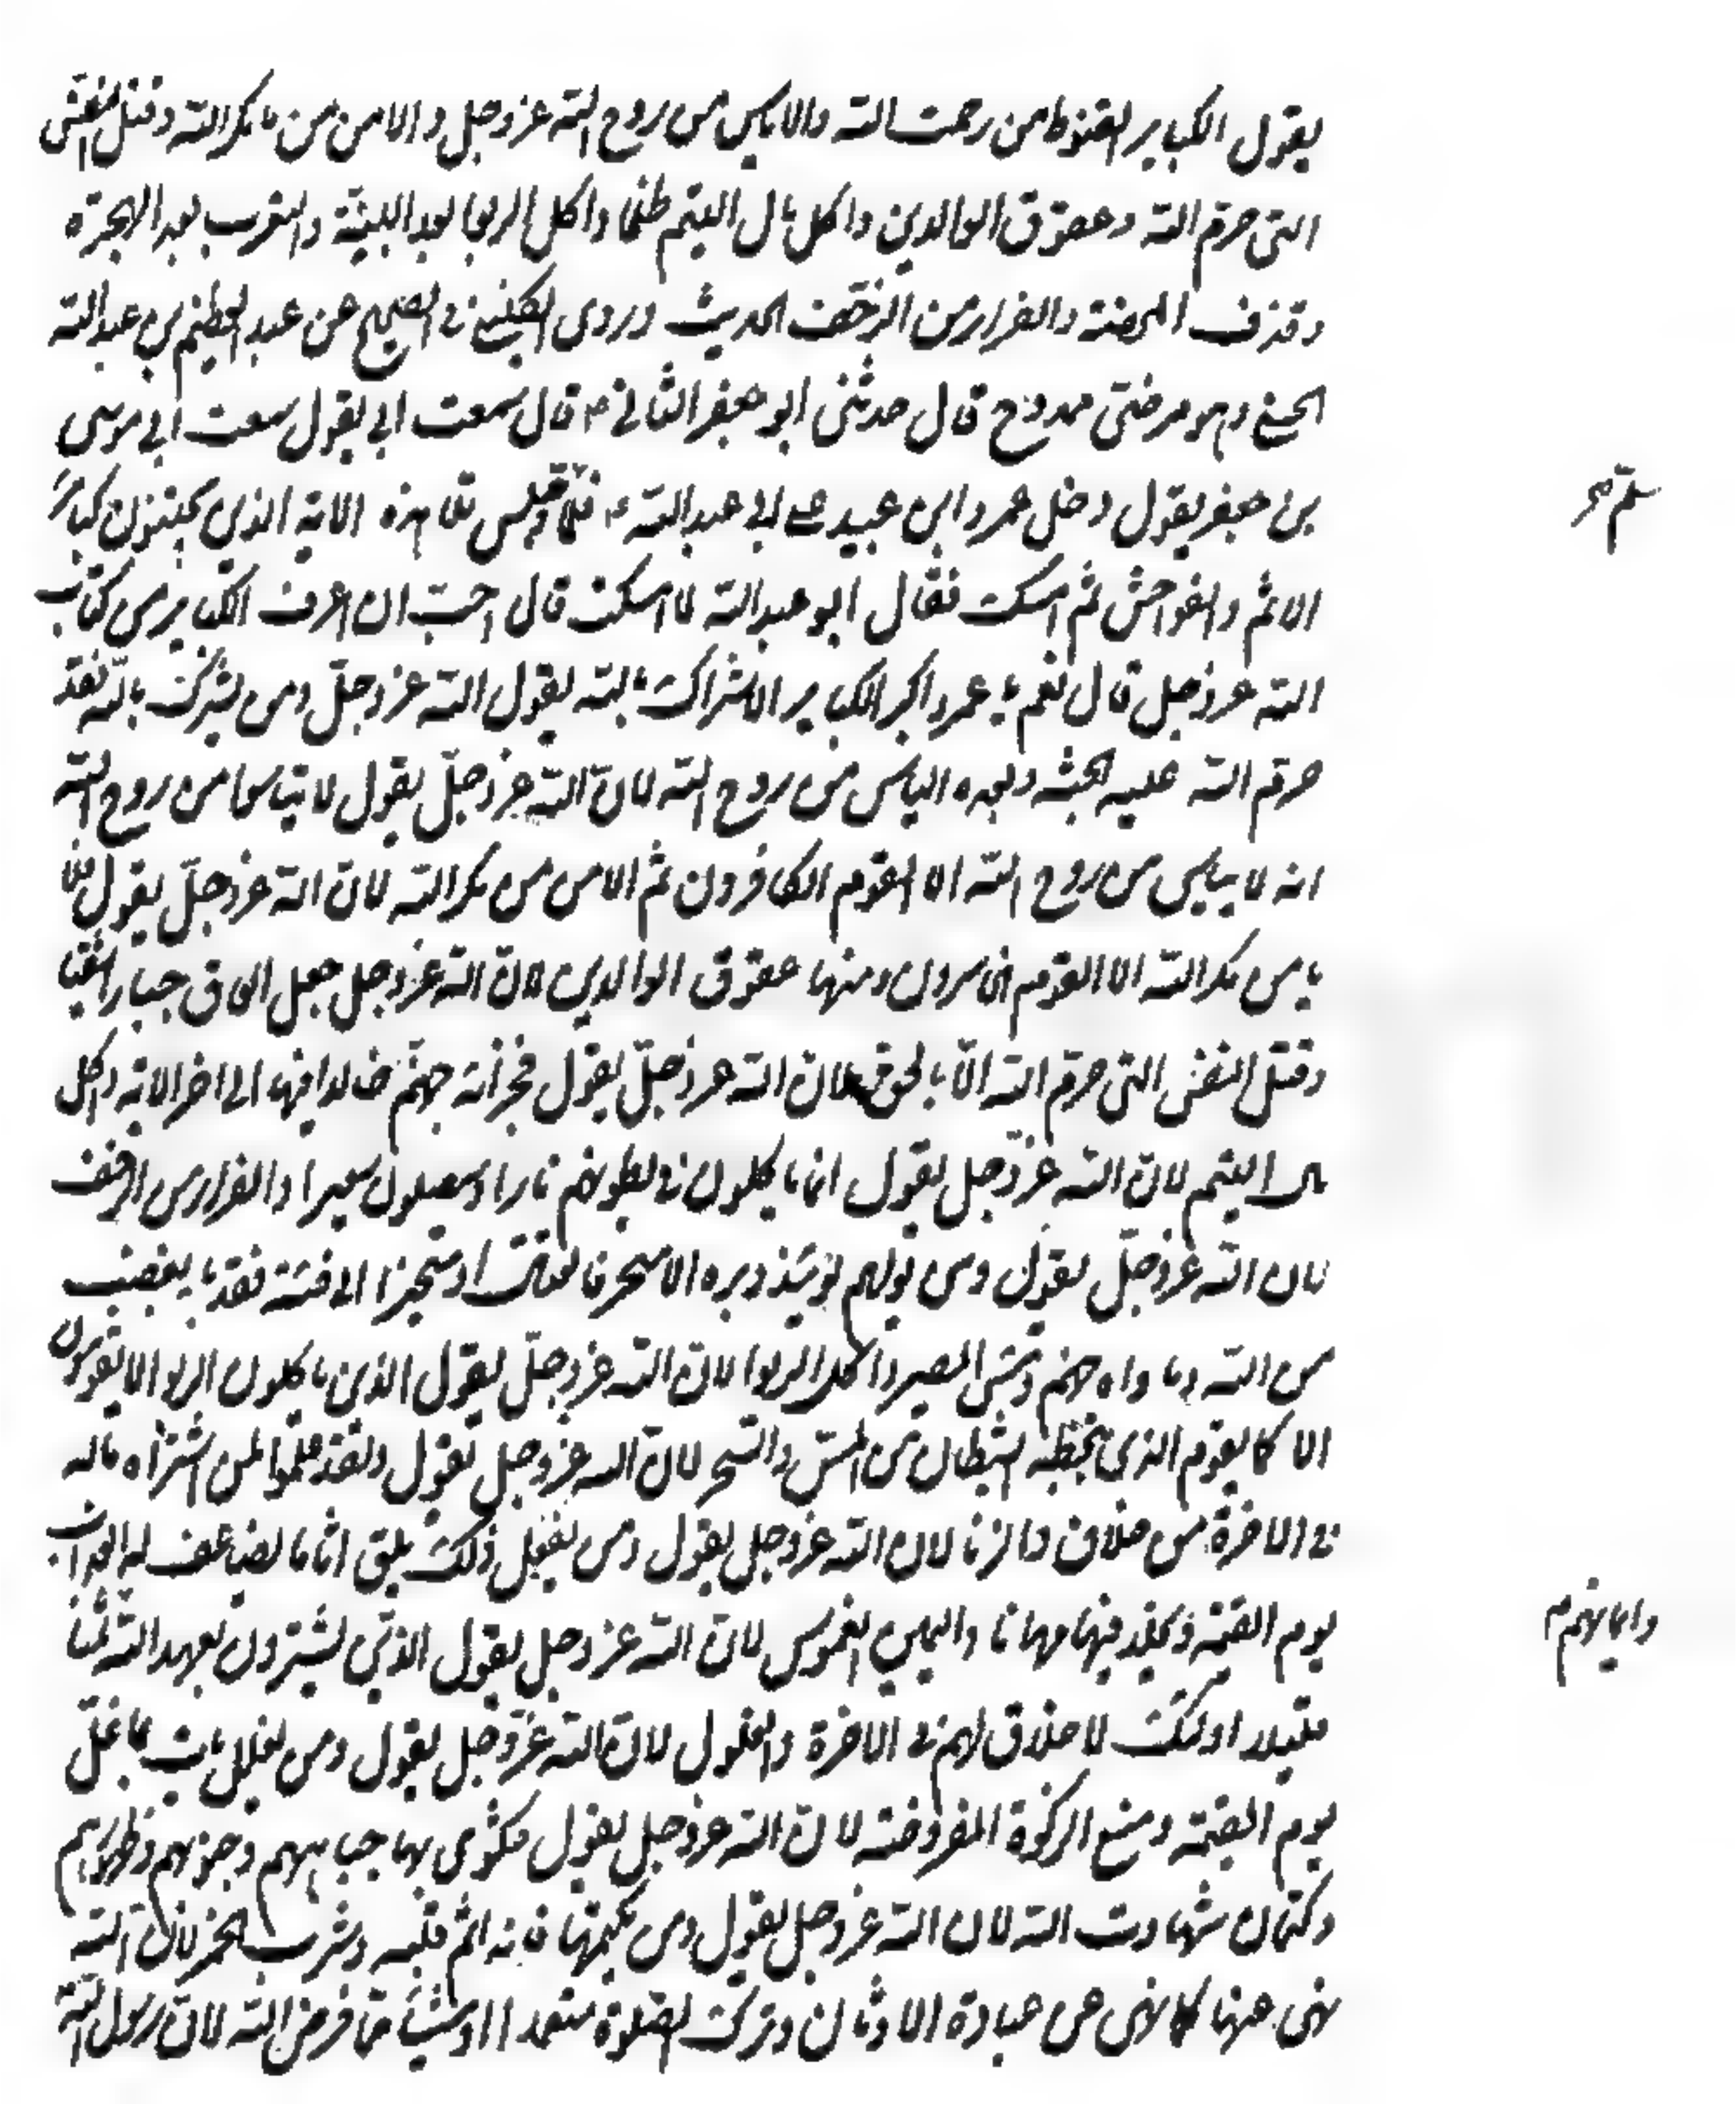 يقول الكباير القنوط من رحمت الله والاياس من روح الله عز وجل والامن من مكر الله وقتل النفس
التى حرّم الله وعقوق الوالدين واكل مال اليتيم ظلما واكل الربوا بعد البينة والتعرب بعد الهجرة
وقذف المحصنة والفرار من الزحف الحديث وروى الكلينى فى الصحيح عن عبد العظيم بن عبد الله
الحسنى وهو مرضىّ ممدوح قال حدثنى ابو جعفر الثانى ع قال سمعت ابى يقول سمعت ابى موسى
بن جعفر يقول دخل عمرو ابن عبيد على ابى عبد الله ع فلمّا وجلس تلا هذه الاية الذين يجتنبون كبائر
سلّم صح
الاثم والفواحش ثم امسك فقال ابو عبد الله ما اسكتك قال احبّ ان اعرف الكباير من كتاب
الله عز وجل قال نعم يا عمرو اكبر الكباير الاشراك بالله يقول الله عز وجلّ ومن يشرك بالله فقد
حرّم الله عليه الجنّة وبعده الياس من روح الله لانّ الله عز وجلّ يقول لا تيئاسوا من روح الله
انه لا ييئس من روح الله الا القوم الكافرون ثم الامن من مكر الله لانّ الله عز وجلّ يقول فلا
يامن مكر الله الا القوم الخاسرون ومنها عقوق الوالدين لانّ الله عز وجل جعل العاق جبارا شقيا
وقتل النفس التى حرّم الله الّا بالحق لان الله عز وجلّ يقول فجزائه جهنّم خالدا فيها الى اخر الاية واكل
مال اليتيم لانّ الله عزّ وجل يقول انما ياكلون فى بطونهم نارا وسيصلون سعيرا والفرار من الزحف
لان الله عز وجلّ يقول ومن يولهم يومئذ دبره الا متحرفا لقتال او متحيزا الى فئة فقد باء بغضب
من الله وماواه جهنم وبئس المصير واكل الربوا لانّ الله عز وجلّ يقول الذين ياكلون الربوا لا يقومون
الا كما يقوم الذى يتخبّطه الشيطان من المسّ والسّحر لانّ الله عز وجل يقول ولقد علموا لمن اشتراه ماله
فى الاخرة من خلاق والزنا لان الله عز وجل يقول ومن يفعل ذلك يلق اثاما يضاعف له العذاب
يوم القيمة ويخلد فيها مهانا واليمين الغموس لانّ الله عز وجل يقول الذين يشترون بعهد الله ثمنا
وايمانهم م
قليلا اولئك لا خلاق لهم فى الاخرة والغلول لانّ الله عزّ وجل يقول ومن يغلل يات بما غلّ
يوم القيمة ومنع الزكوة المفروضة لانّ الله عز وجل يقول فتكوى بها جباههم وجنوبهم وظهورهم
وكتمان شهادت الله لان الله عز وجل يقول ومن يكتمها فانه اثم قلبه وشرب الخمر لانّ الله
نهى عنها كما نهى عن عبادة الاوثان وترك الصلوة متعمدا او شيئا ممّا فرض الله لانّ رسول الله